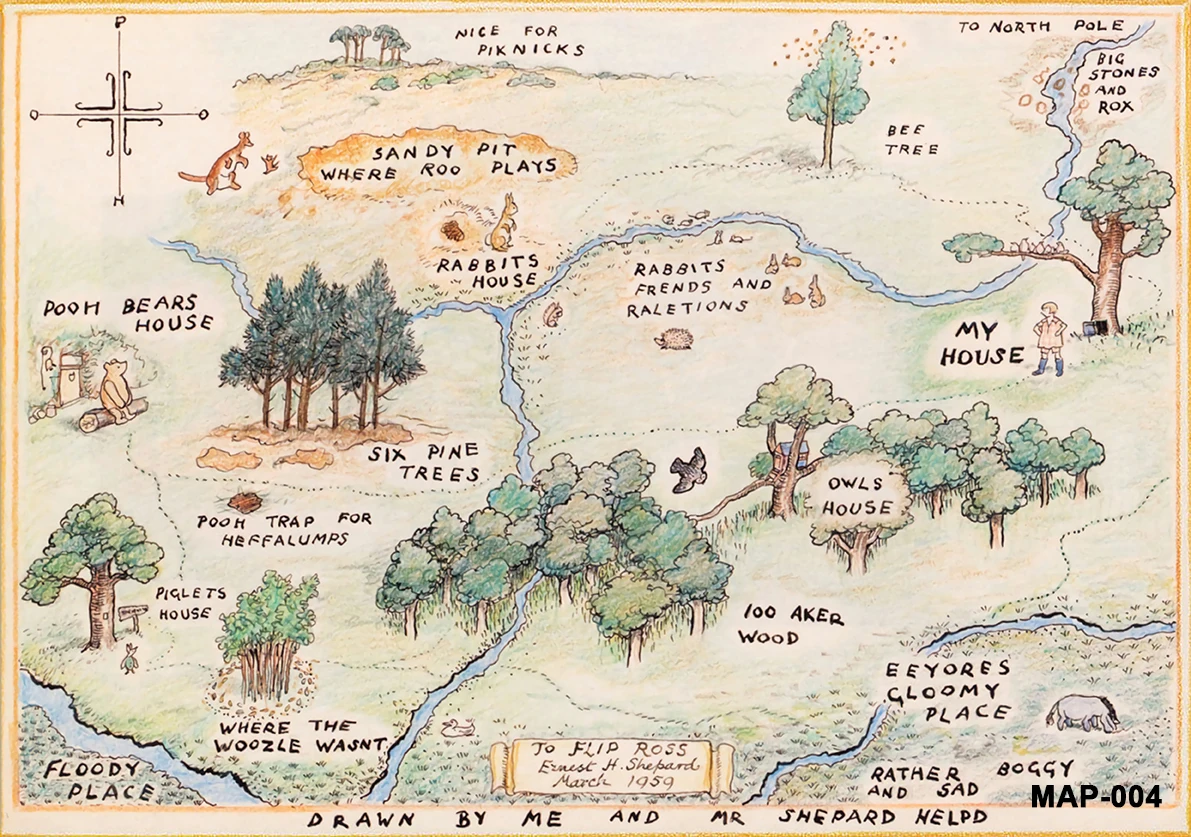 P
NICE FOR
PIKNICKS
TO NORTH POLE
BIG
STONES
AND
ROX
O
O
H
SANDY PIT
WHERE ROO PLAYS
BEE
TREE
RABBITS
HOUSE
RABBITS
FRENDS AND
RALETIONS
POOH BEARS
HOUSE
MY
HOUSE
SIX PINE
TREES
OWLS
HOUSE
POOH TRAP FOR
HEFFALUMPS
PIGLETS
HOUSE
100 AKER
WOOD
EEYORES
GLOOMY
PLACE
WHERE THE
WOOZLE WASNT
FLOODY
PLACE
TO FLIP ROSS
Ernest H. Shepard
March 1959
RATHER BOGGY
AND SAD
MAP-004
DRAWN BY ME AND MR SHEPARD HELPD